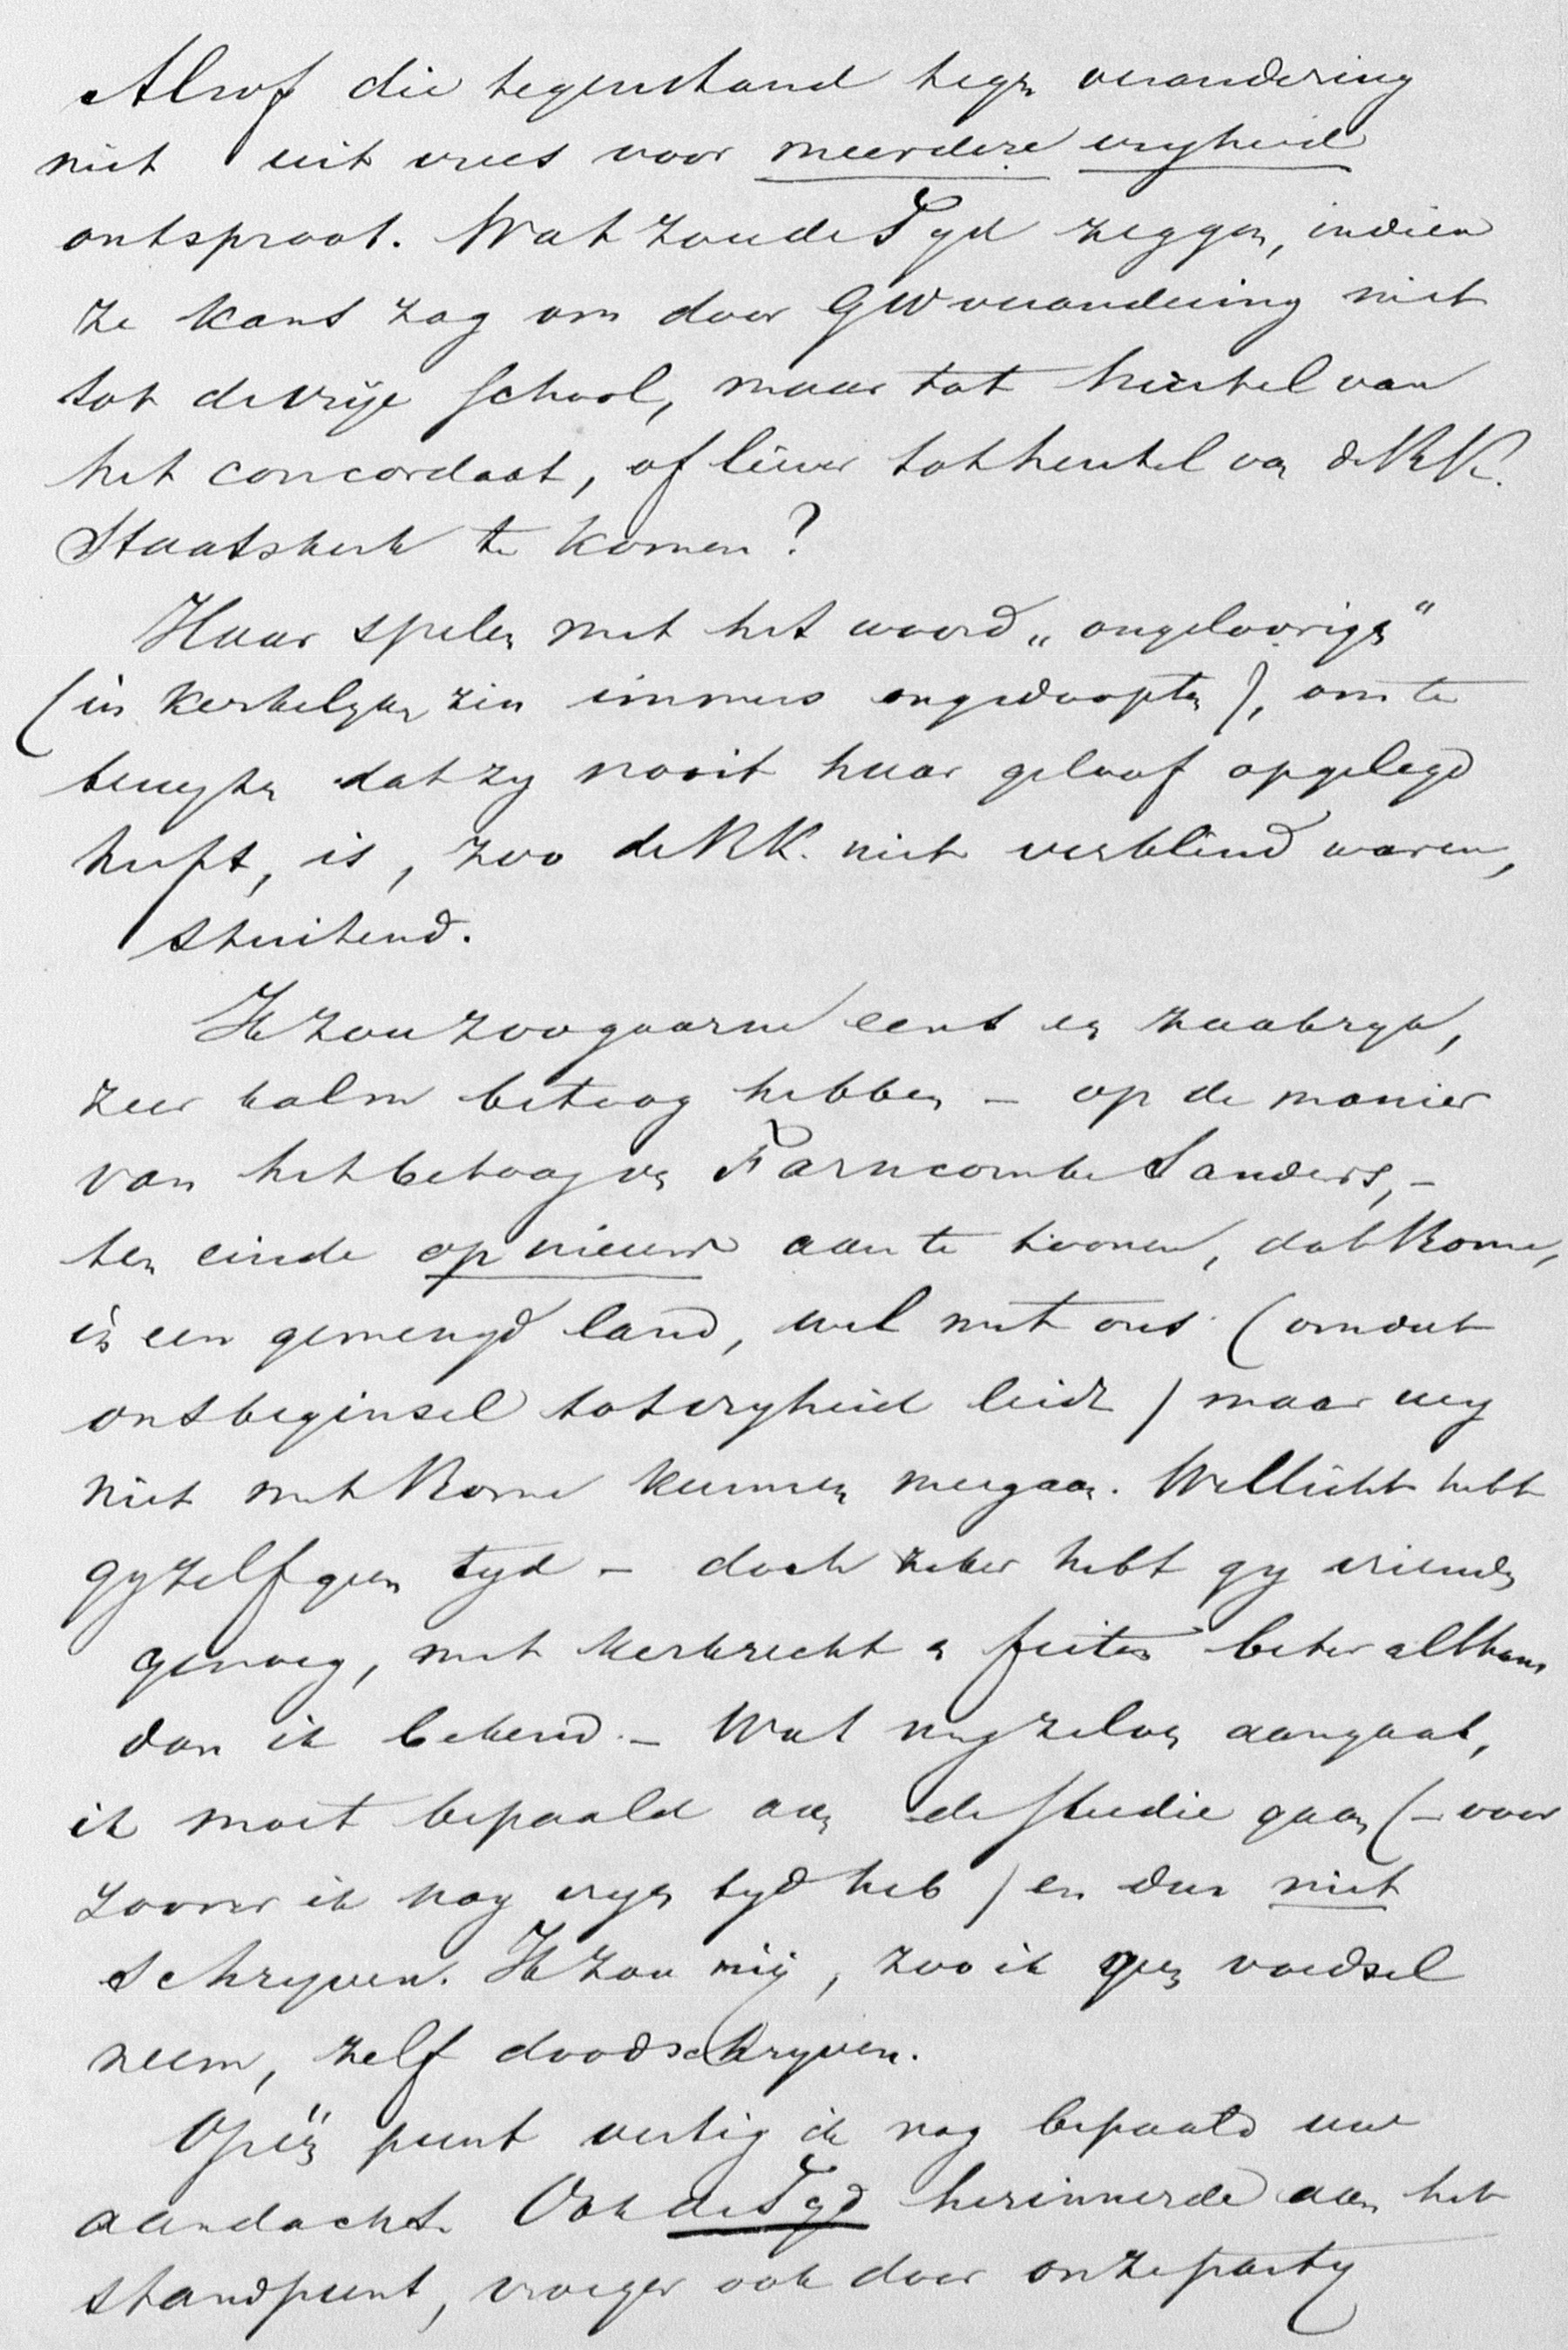 Alsof die tegenstand tegen verandering
niet uit vrees voor meerdere vryheid
ontsproot. Wat zoude Tyd zeggen, indien
ze kans zag om door GWverandering niet
tot de vrije school, maar tot herstel van
het concordaat, of liever tot herstel van de RK.
Staatskerk te komen?
Haar spelen met het woord „ongeloovigen"
(in kerkelyken zin immers ongedoopten), om te
beweren dat zy nooit haar geloof opgelegd
heeft, is, zoo de RK. niet verblind waren,
stuitend.
Ik zou zoo gaarne eens een zaakryk,
zeer kalm betoog hebben – op de manier
van het betoog van Farncombe Sanders, –
ten einde op nieuw aan te toonen, dat Rome,
in een gemengd land, wel met ons (omdat
ons beginsel tot vryheid leidt) maar wy
niet met Rome kunnen meegaan. Wellicht hebt
gy zelf geen tyd – doch zeker hebt gy vrienden
genoeg, met kerkrecht en feiten beter althans
dan ik bekend. – Wat my zelven aangaat,
ik moet bepaald aan de studie gaan (– voor
zoover ik nog vryen tyd heb) en dan niet
schryven. Ik zou mij, zoo ik geen voedsel
neem, zelf doodschryven.
Op één punt vestig ik nog bepaald uw
aandacht. Ook de Tyd herinnerde aan het
standpunt, vroeger ook door onze party